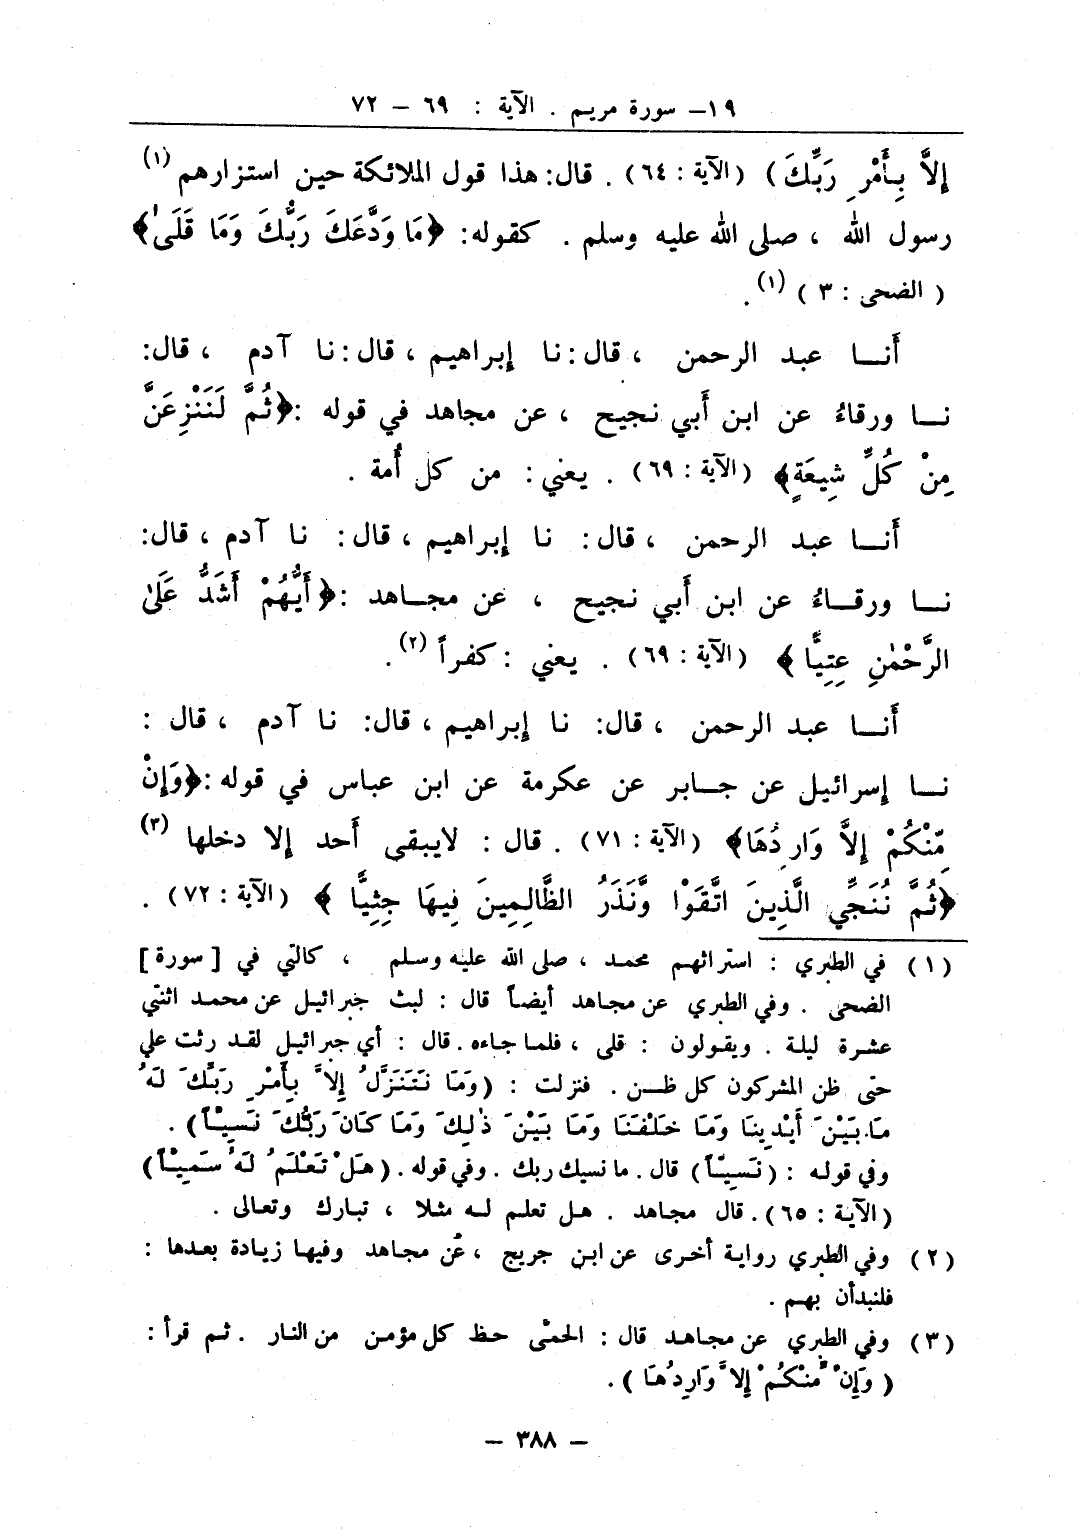 ١٩- سورة مريم . الآية : ٦٩ - ٧٢
إِلاَّ بِأَمْرِ رَبِّكَ) (الآية : ٦٤) . قال: هذا قول الملائكة حين استزارهم (١)
رسول الله ، صلى الله عليه وسلم . كقوله: ﴿مَا وَدَّعَكَ رَبُّكَ وَمَا قَلَىٰ﴾
( الضحى : ٣ ) (١) .
أَنـا عبد الرحمن ، قال: نا إبراهيم ، قال: نا آدم ، قال:
نـا ورقاءُ عن ابن أَبي نجيح ، عن مجاهد في قوله :﴿ثُمَّ لَنَنْزِعَنَّ
مِنْ كُلِّ شِيعَةٍ﴾ (الآية : ٦٩) . يعني: من كل أُمة .
أَنـا عبد الرحمن ، قال: نا إبراهيم ، قال: نا آدم ، قال:
نـا ورقـاءُ عن ابن أَبي نجيح ، عن مجـاهد :﴿أَيُّهُمْ أَشَدُّ عَلَىٰ
الرَّحْمٰنِ عِتِيًّا﴾ (الآية : ٦٩) . يعني : كفراً (٢) .
أَنـا عبد الرحمن ، قال: نا إبراهيم ، قال: نا آدم ، قال :
نـا إسرائيل عن جـابر عن عكرمة عن ابن عباس في قوله :﴿وَإِنْ
مِّنْكُمْ إِلاَّ وَارِدُهَا﴾ (الآية : ٧١) . قال : لايبقى أَحد إلا دخلها (٣)
﴿ثُمَّ نُنَجِّي الَّذِينَ اتَّقَوْا وَّنَذَرُ الظَّالِمِينَ فِيهَا جِثِيًّا﴾ (الآية : ٧٢) .
(١) في الطبري : استراثهم محمد ، صلى الله عليه وسلم ، كالتي في [ سورة ]
الضحى . وفي الطبري عن مجاهد أيضاً قال : لبث جبرائيل عن محمد اثنتي
عشرة ليلة . ويقولون : قلى ، فلما جاءه . قال : أي جبرائيل لقد رثت علي
حتى ظن المشركون كل ظـن . فنزلت : (وَمَا نَتَنَزَّلُ إِلاَّ بِأَمْرِ رَبِّكَ لَهُ
مَا بَيْنَ أَيْدِينَا وَمَا خَلْفَنَا وَمَا بَيْنَ ذٰلِكَ وَمَا كَانَ رَبُّكَ نَسِيًّا) .
وفي قوله : (نَسِيًّا) قال . ما نسيك ربك . وفي قوله . (هَلْ تَعْلَمُ لَهُ سَمِيًّا)
(الآية : ٦٥) . قال مجاهد . هل تعلم له مثلا ، تبارك وتعالى .
(٢) وفي الطبري رواية أخرى عن ابن جريج ، عن مجاهد وفيها زيادة بعدها :
فلنبدأن بهم .
(٣) وفي الطبري عن مجاهد قال : الحمّى حظ كل مؤمن من النار . ثم قرأ :
( وَإِنْ مِّنْكُمْ إِلاَّ وَارِدُهَا ) .
- ٣٨٨ -